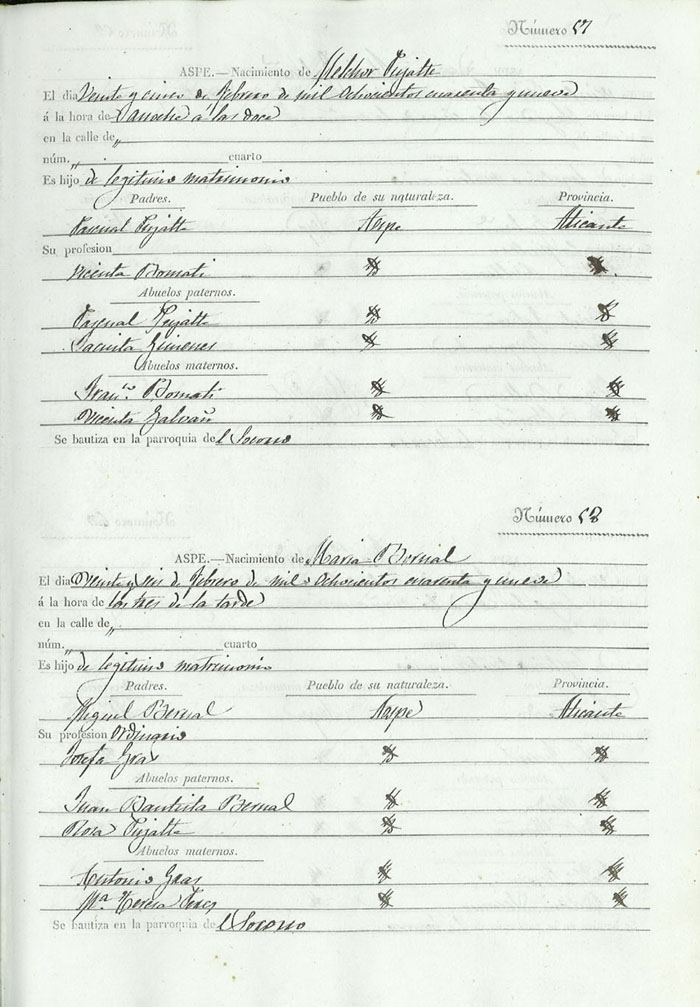 Número 57
ASPE.—Nacimiento de Melchor Pujalte
El dia Veinte y cinco de febrero de mil ochocientos cuarenta y nueve
á la hora de La noche a las doce
en la calle de „
núm. „ cuarto
Es hijo de legitimo matrimonio
Padres. Pueblo de su naturaleza. Provincia.
Pascual Pujalte Aspe Alicante
Su profesion
Vicenta Bomati
Abuelos paternos.
Pascual Pujalte
Gimenes
Abuelos maternos.
Franco. Bomati
Vicenta Galvañ
Se bautiza en la parroquia del Socorro
Número 58
ASPE.—Nacimiento de Maria Bernal
El dia Veinte y seis de febrero de mil ochocientos cuarenta y nueve
á la hora de las tres de la tarde
en la calle de „
núm. „ cuarto
Es hijo de legitimo matrimonio
Padres. Pueblo de su naturaleza. Provincia.
Miguel Bernal Aspe Alicante
Su profesion Ordinario
Josefa Gras
Abuelos paternos.
Juan Bautista Bernal
Rosa Pujalte
Abuelos maternos.
Antonio Gras
Mª Teresa
Se bautiza en la parroquia del Socorro